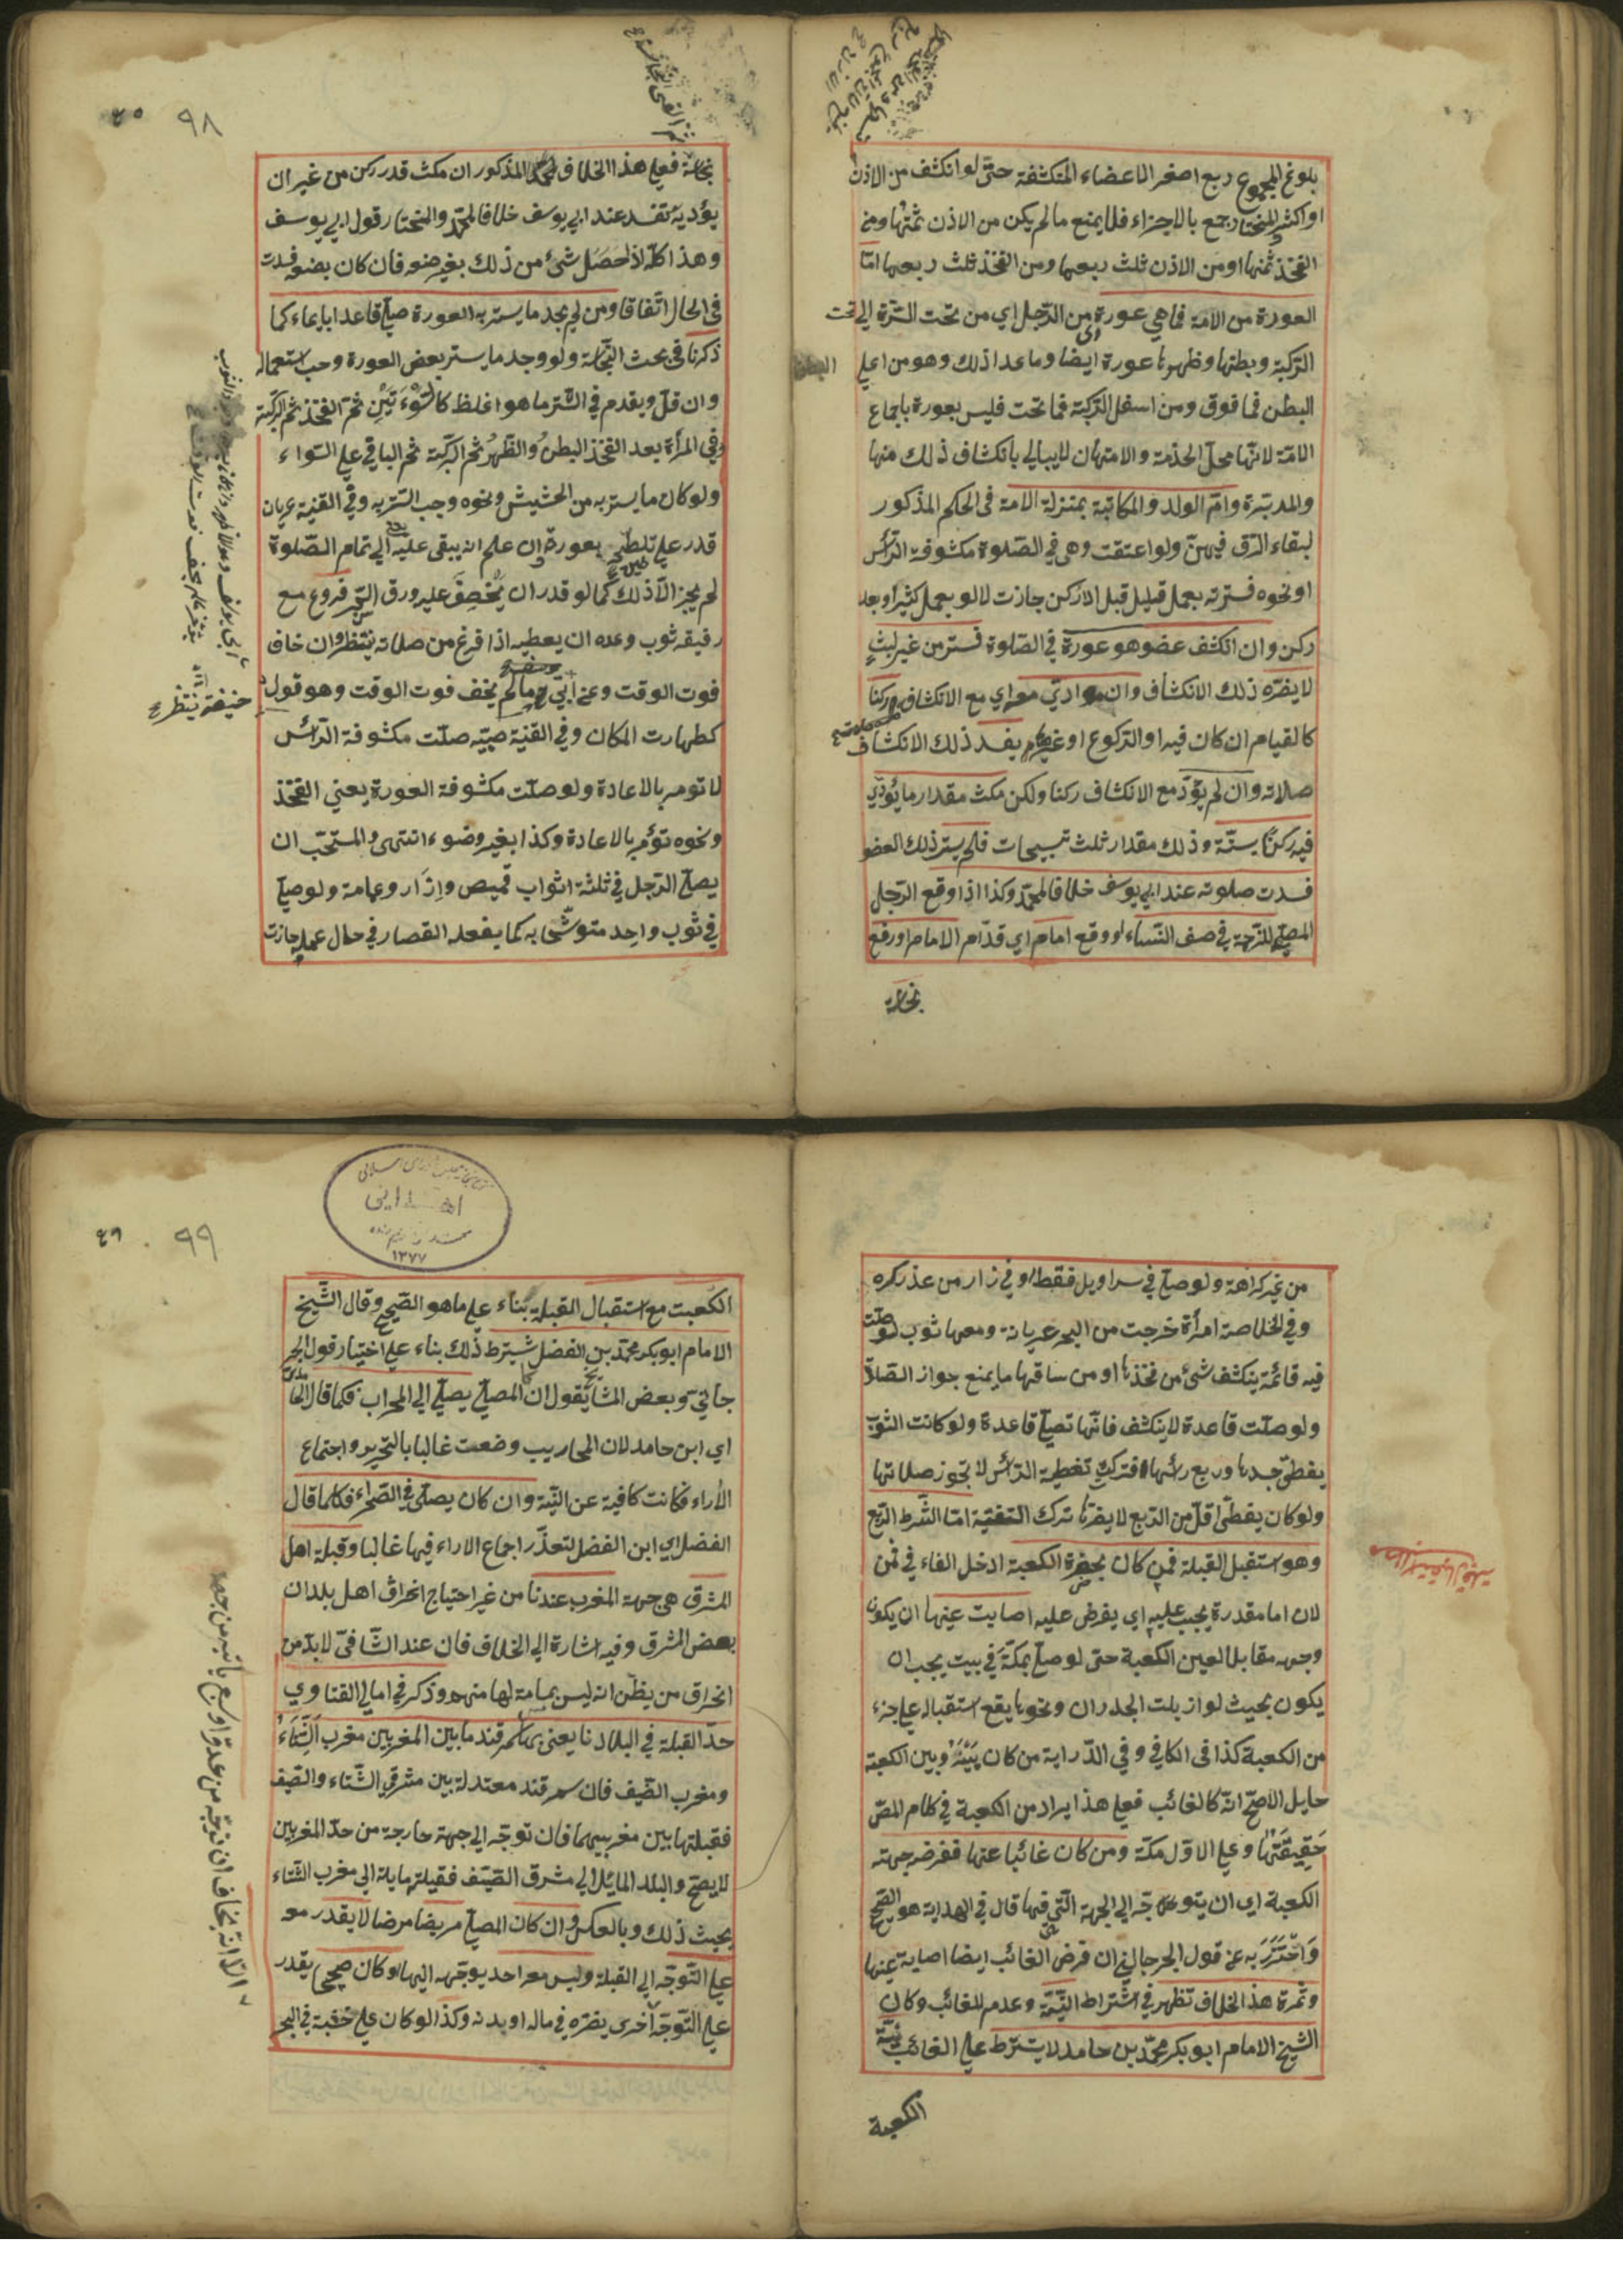 بلوغ المجموع ربع اصغر الاعضاء المنكشفة حتى لو انكشف من الاذن
او اكثر المختار جمع بالاجزاء فلا يمنع ما لم يكن من الاذن ثمنها ومن
الفخذ ثمنها او من الاذن ثلث ربعها ومن الفخذ ثلث ربعها امّا
العورة من الامة فما هي عورة من الرّجل اي من تحت السّرّة الى تحت
الرّكبة وبطنها وظهرها عورة ايضا وما عدا ذلك وهو من اعلى
البطن فما فوق ومن اسفل الرّكبة فما تحت فليس بعورة باجماع
الامّة لانّها محلّ الخدمة والامتهان لا يبالي بانكشاف ذلك منها
والمدبّرة وامّ الولد والمكاتبة بمنزلة الامة فى الحكم المذكور
لبقاء الرّق فيهنّ ولو اعتقت وهى في الصّلوة مكشوفة الرّأس
او نحوه فسترته بعمل قليل قبل الاركن جازت لا لو بعمل كثير او بعد
ركن وان انكشف عضو هو عورة في الصّلوة فستر من غير لبثٍ
لا يضرّه ذلك الانكشاف وان ادّى معه اي مع الانكشاف ركنا
كالقيام ان كان فيه او الرّكوع او غيرهم يفسد ذلك الانكشاف
صلاته وان لم يؤدّ مع الانكشاف ركنا ولكن مكث مقدار ما يؤدّي
فيه ركنًا بسنّة وذلك مقدار ثلث تسبيحات فلم يستر ذلك العضو
فسدت صلوته عند ابي يوسف خلافا لمحمّد وكذا اذا وقع الرّجل
المصلّي للزّحمة في صف النّساء او وقع امام اي قدّام الامام او رفع
نجاسة
٩٨
نجاسة فعلى هذا الخلاف المذكور ان مكث قدر ركن من غير ان
يؤديه تفسد عند ابي يوسف خلافا لمحمّد والمختار قول ابي يوسف
وهذا كلّه اذا حَصَل شئ من ذلك بغير صنعه فان كان بصنعه فسدت
في الحال اتّفاقا ومن لم يجد ما يستر به العورة صلّى قاعدا بايماء كما
ذكرنا فى بحث النّجاسة ولو وجد ما يستر بعض العورة وجب استعماله
وان قلّ ويقدم في السّتر ما هو اغلظ كالسَّوْءَتَيْنِ ثمّ الفخذ ثم الرّكبة
وفي المرأة بعد الفخذ البطنُ والظّهرُ ثم الرّكبة ثم الباقي على السّواء
ولو كان ما يستر به من الحشيش ونحوه وجب السّتر به وفي القنية عريان
قدر على تلطيخ عورته ان علم انه يبقى عليه الى تمام الصّلوة
لم يجز الّا ذلك كما لو قدر ان يَخْصِفَ عليه ورق الشّجر فروع مع
رفيقه ثوب وعده ان يعطيه اذا فرغ من صلاته ينتظر وان خاف
فوت الوقت وعن ابي ما لم يخف فوت الوقت وهو قول
كطهارت المكان وفي القنية صبيّه صلّت مكشوفة الرّأس
لا تومر بالاعادة ولو صلّت مكشوفة العورة يعني الفخذ
ونحوه تؤمر بالاعادة وكذا بغير وضوء انتهى والمستحّب ان
يصلّي الرّجل في ثلثة اثواب قميص وازار وعمامة ولو صلّى
في ثوب واحد متوشّحا به كما يفعله القصار في حال عمله جازت
حنيفة ينتظر
من غير كراهة ولو صلّى في سراويل فقط او في زار من عذر كره
وفي الخلاصة امرأة خرجت من البحر عريانة ومعها ثوب لو صلّت
فيه قائمة ينكشف شئ من فخذها او من ساقها ما يمنع جواز الصّلاة
ولو صلّت قاعدة لا ينكشف فانّها تصلّي قاعدة ولو كانت الثوب
يغطى جسدها وربع رأسها فتركت تغطية الرّأس لا تجوز صلاتها
ولو كان يغطّى اقلّ من الرّبع لا يضرّها ترك التغطية امّا الشّرط الرّبع
وهو استقبل القبلة فمن كان بحضرة الكعبة ادخل الفاء في فمن
لان اما مقدرة يجب عليه اي يفرض عليه اصابت عينها ان يكون
وجهه مقابلا لعين الكعبة حتى لو صلّى بمكّة في بيت يجب ان
يكون بحيث لو ازيلت الجدران ونحوها يقع استقباله على جزء
من الكعبة كذا فى الكافي وفي الدّراية من كان بَيْنَهُ وبين الكعبة
حايل الاصحّ انّه كالغائب فعلى هذا يراد من الكعبة في كلام المصّ
حَقِيقَتَها وعلى الاوّل مكّة ومن كان غائبا عنها ففرضه جهته
الكعبة اي ان يتوجّه الى الجهة الّتى فيها قال في الهداية هو الصّحيح
وَاحْتَرَزَ به عن قول الجرجاني ان فرض الغائب ايضا اصابة عينها
وثمرة هذا الخلاف تظهر في اشتراط النّيّة وعدم للغائب وكان
الشيخ الامام ابو بكر محمّد بن حامد لا يشترط على الغائب نيّة
الكعبة
استقبال قبلة
٩٩
١٣٧٧
الكعبت مع استقبال القبلة بناء على ما هو الصّحيح وقال الشّيخ
الامام ابو بكر محمّد بن الفضل يشترط ذلك بناء على اختيار قول الجر
جاني وبعض المشايخ يقول ان المصلّي يصلّي الى المحراب فكما قال الحامدي
اي ابن حامد لان المحاريب وضعت غالبا بالتحرير واجتماع
الأراء فكانت كافية عن النّيّة وان كان يصلّى في الصّحراء فكما قال
الفضلي اي ابن الفضل لتعذّر اجماع الاراء فيها غالبا وقبلة اهل
المشرق هى جهة المغرب عندنا من غير احتياج انحراف اهل بلدان
بعض المشرق وفيه اشارة الى الخلاف فان عند الشّافعىّ لا بدّ من
انحراف من يظنّ انه ليس بمسامتة لها منهم وذكر في امالي الفتاوي
حدّ القبلة في البلادنا يعنى سمرقند ما بين المغربين مغرب الشِّتَاءُ
ومغرب الصّيف فان سمرقند معتدلة بين مشرقي الشّتاء والصّيف
فقبلتها بين مغربيهما فان توجّه الى جهة خارجة من حدّ المغربين
لا يصحّ والبلد المائل الى مشرق الصّيف فقبلته مايلة الى مغرب الشتاء
بحيث ذلك وبالعكس وان كان المصلّي مريضا مرضا لا يقدر معه
على التّوجّه الى القبلة وليس معه احد يوجّهه اليها او كان صحيحا يقدر
على التّوجّه اخرى يضرّه في ماله او بدنه وكذا لو كان على خشبة في البحر
الّا انّه يخاف ان توجّه من عدوّ او سبع يأتيه من جهة